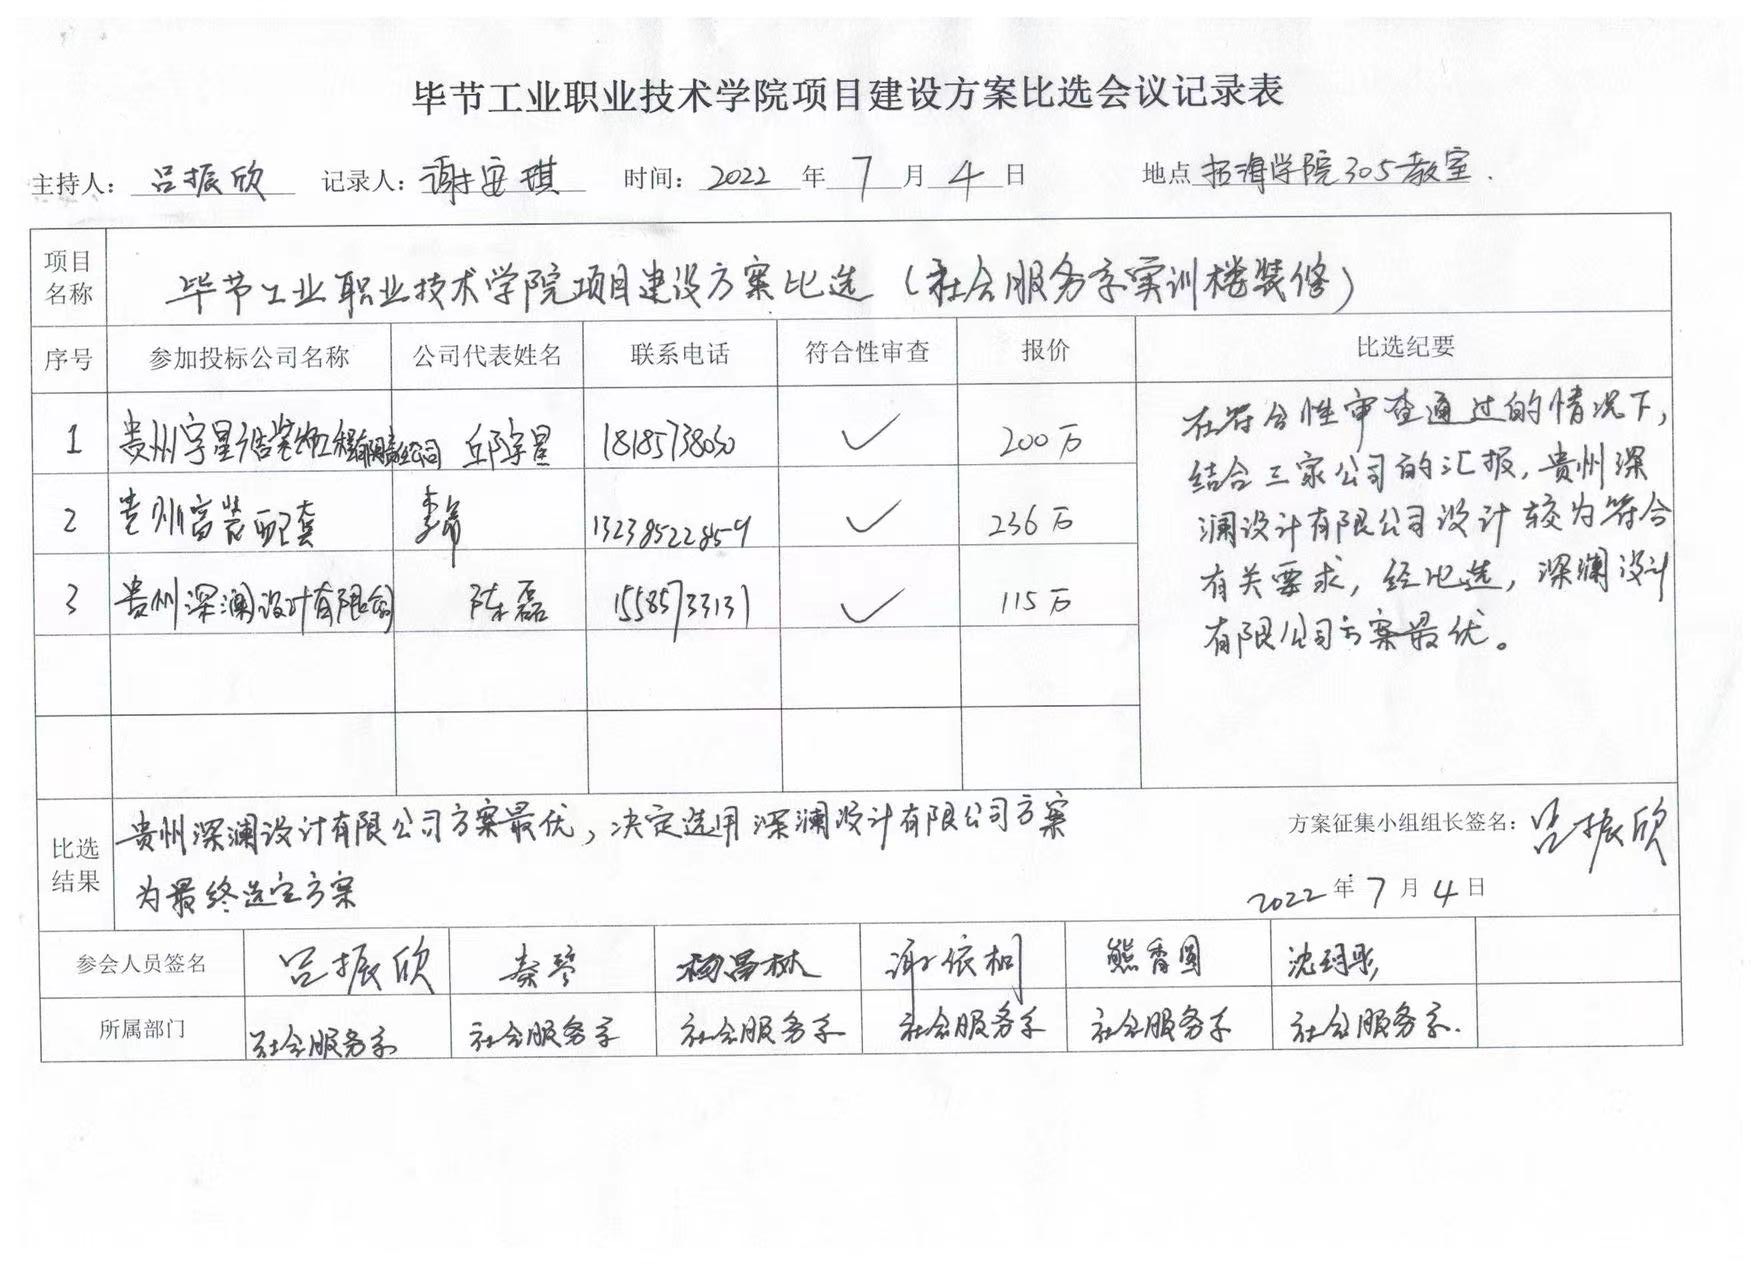 毕节工业职业技术学院项目建设方案比选会议记录表
主持人： 吕振欣 记录人：谢安琪 时间： 2022 年 7 月 4 日 地点 招海学院305教室.
项目名称 毕节工业职业技术学院项目建设方案比选（社会服务系实训楼装修）
序号 参加投标公司名称 公司代表姓名 联系电话 符合性审查 报价 比选纪要
1 贵州宇星 有限责任公司 邱宇星 18185738030 ✓ 200万
2 贵州 装配套 李 ✓ 236万
3 贵州深澜设计有限公司 陈磊 15585733131 ✓ 115万
在符合性审查通过的情况下，
结合三家公司的汇报，贵州深
澜设计有限公司设计较为符合
有关要求，经比选，深澜设计
有限公司方案最优。
比选结果 贵州深澜设计有限公司方案最优，决定选用深澜设计有限公司方案
为最终选定方案
方案征集小组组长签名：吕振欣
2022 年 7 月 4 日
参会人员签名 吕振欣 秦琴 杨昌林 谢依桐 熊香圆 沈
所属部门 社会服务系 社会服务系 社会服务系 社会服务系 社会服务系 社会服务系.